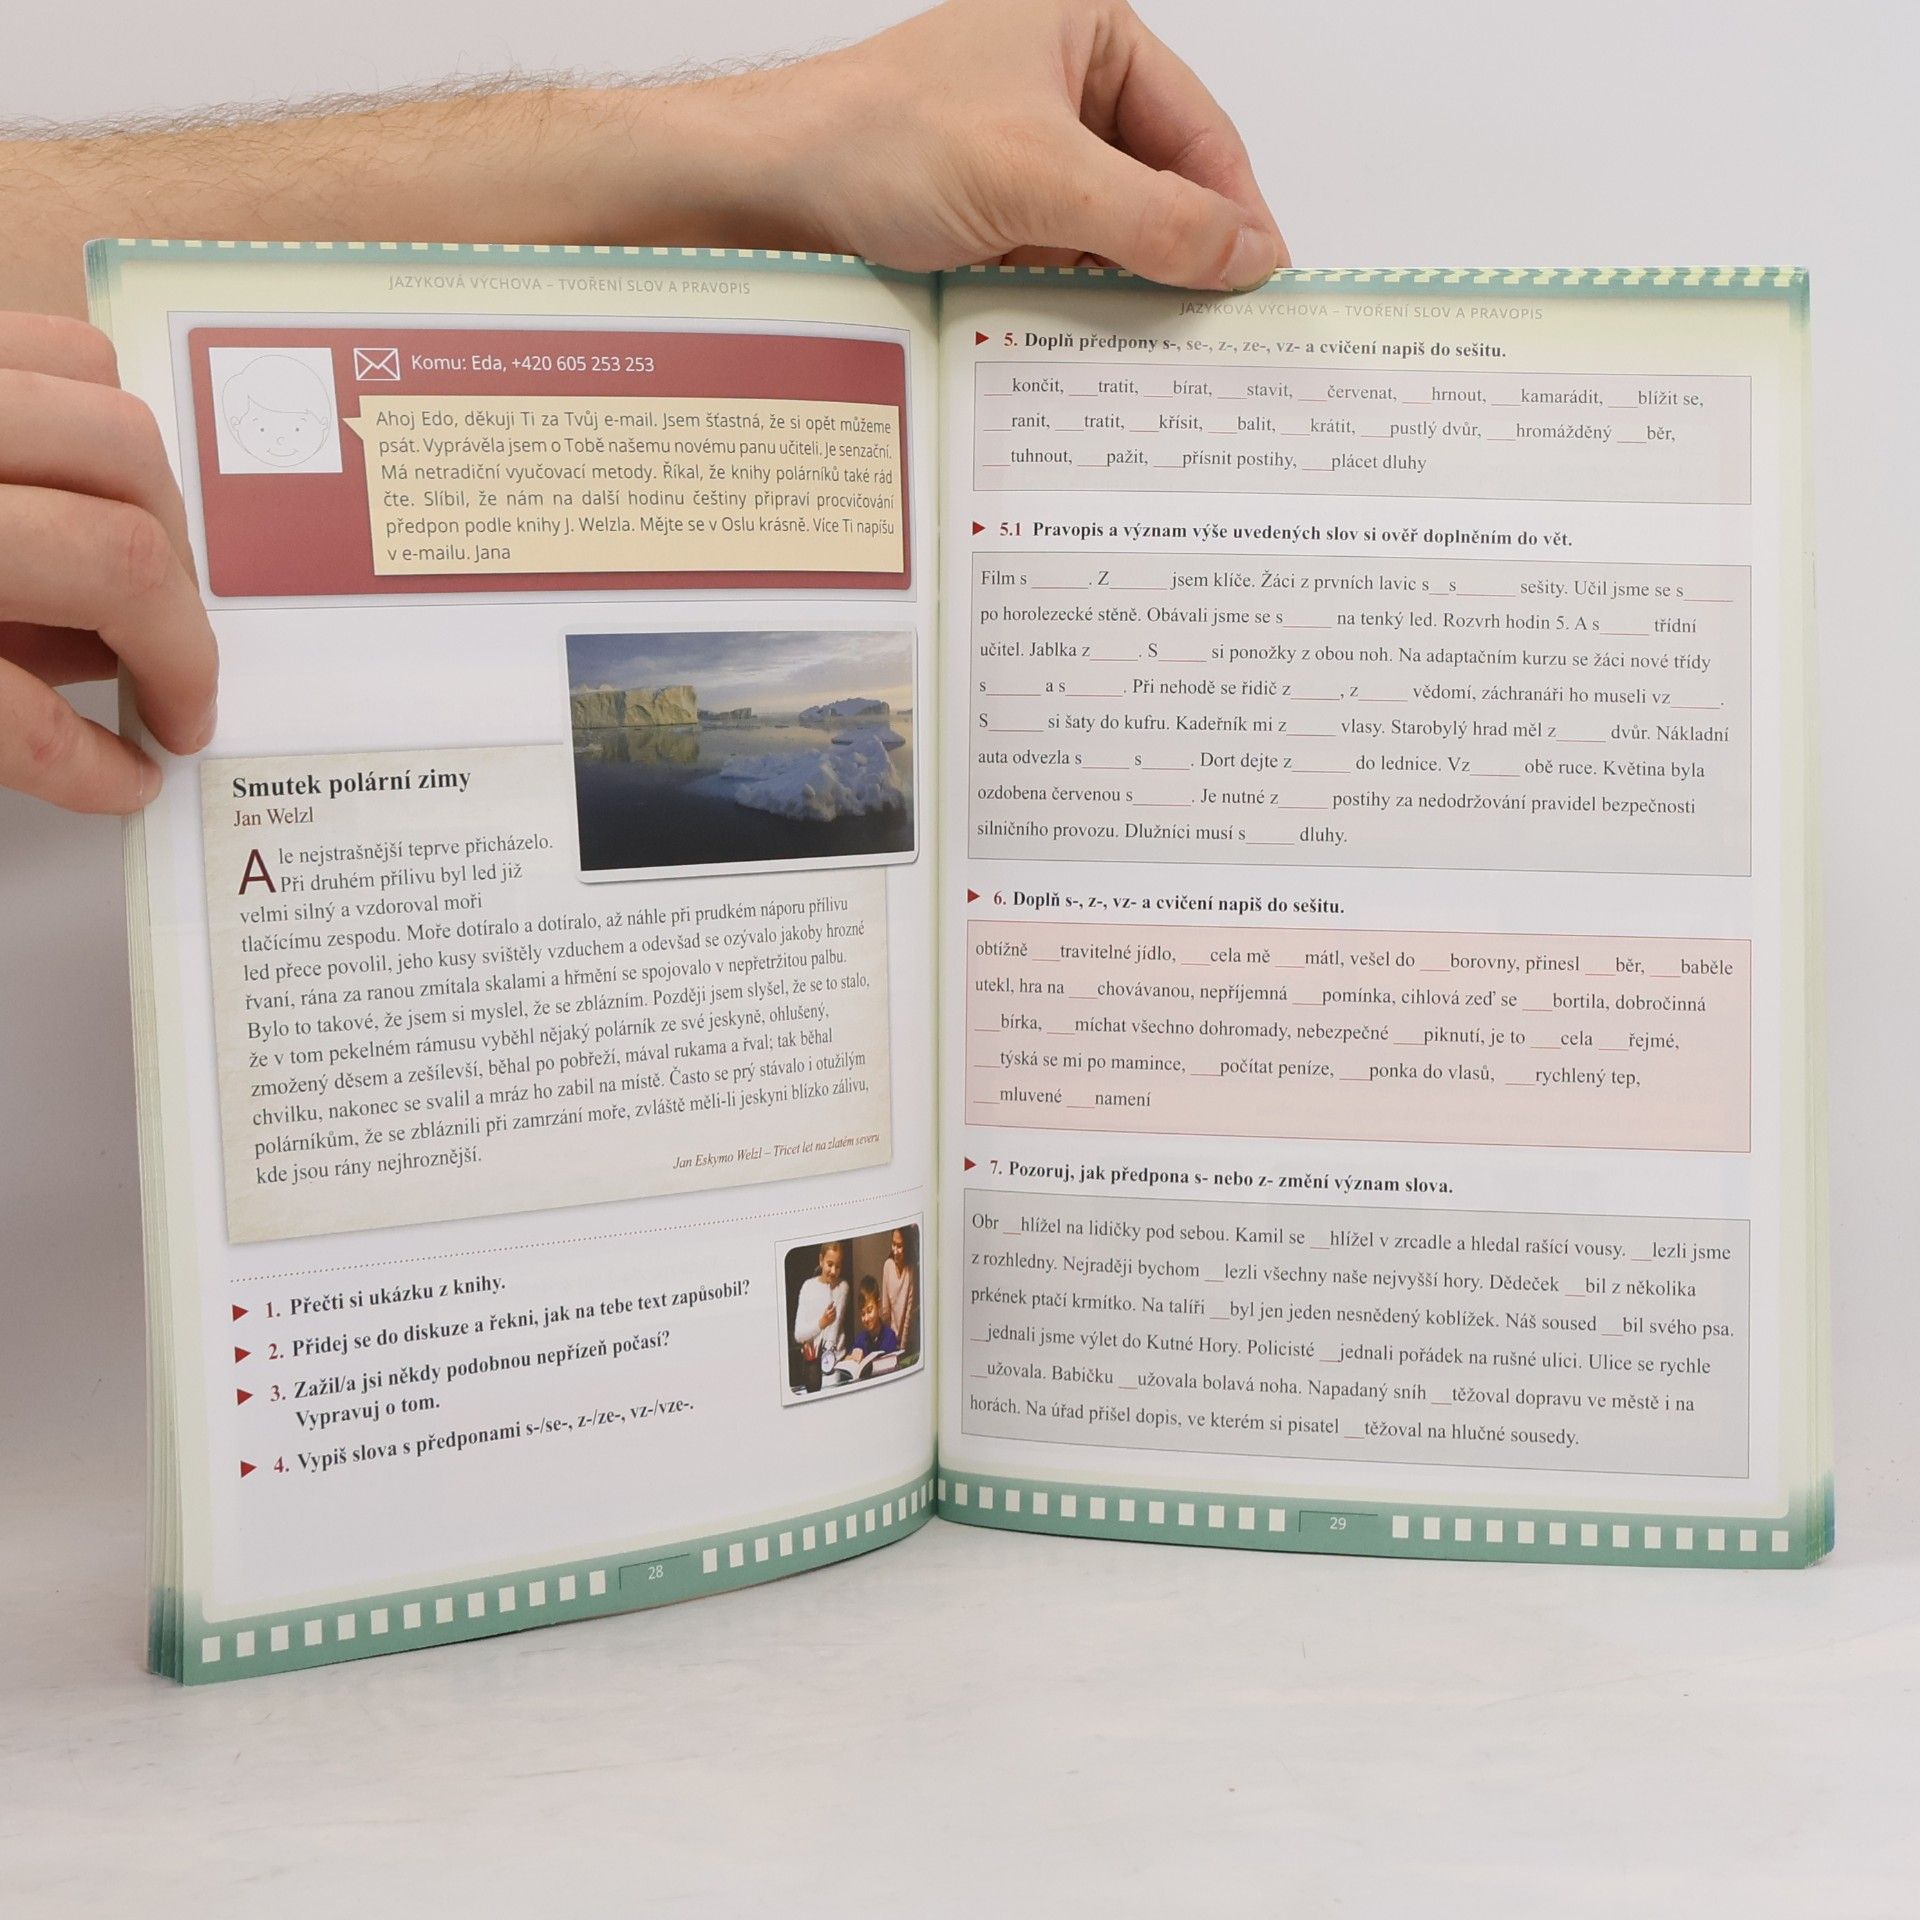 JAZYKOVÁ VÝCHOVA – TVOŘENÍ SLOV A PRAVOPIS
Komu: Eda, +420 605 253 253
Ahoj Edo, děkuji Ti za Tvůj e-mail. Jsem šťastná, že si opět můžeme
psát. Vyprávěla jsem o Tobě našemu novému panu učiteli. Je senzační.
Má netradiční vyučovací metody. Říkal, že knihy polárníků také rád
čte. Slíbil, že nám na další hodinu češtiny připraví procvičování
předpon podle knihy J. Welzla. Mějte se v Oslu krásně. Více Ti napíšu
v e-mailu. Jana
Smutek polární zimy
Jan Welzl
Ale nejstrašnější teprve přicházelo.
Při druhém přílivu byl led již
velmi silný a vzdoroval moři
tlačícímu zespodu. Moře dotíralo a dotíralo, až náhle při prudkém náporu přílivu
led přece povolil, jeho kusy svištěly vzduchem a odevšad se ozývalo jakoby hrozné
řvaní, rána za ranou zmítala skalami a hřmění se spojovalo v nepřetržitou palbu.
Bylo to takové, že jsem si myslel, že se zblázním. Později jsem slyšel, že se to stalo,
že v tom pekelném rámusu vyběhl nějaký polárník ze své jeskyně, ohlušený,
zmožený děsem a zešílevší, běhal po pobřeží, mával rukama a řval; tak běhal
chvilku, nakonec se svalil a mráz ho zabil na místě. Často se prý stávalo i otužilým
polárníkům, že se zbláznili při zamrzání moře, zvláště měli-li jeskyni blízko zálivu,
kde jsou rány nejhroznější.
Jan Eskymo Welzl – Třicet let na zlatém severu
1. Přečti si ukázku z knihy.
2. Přidej se do diskuze a řekni, jak na tebe text zapůsobil?
3. Zažil/a jsi někdy podobnou nepřízeň počasí?
Vypravuj o tom.
4. Vypiš slova s předponami s-/se-, z-/ze-, vz-/vze-.
28
JAZYKOVÁ VÝCHOVA – TVOŘENÍ SLOV A PRAVOPIS
5. Doplň předpony s-, se-, z-, ze-, vz- a cvičení napiš do sešitu.
___končit, ___tratit, ___bírat, ___stavit, ___červenat, ___hrnout, ___kamarádit, ___blížit se,
___ranit, ___tratit, ___křísit, ___balit, ___krátit, ___pustlý dvůr, ___hromážděný ___běr,
___tuhnout, ___pažit, ___přísnit postihy, ___plácet dluhy
5.1 Pravopis a význam výše uvedených slov si ověř doplněním do vět.
Film s______. Z______ jsem klíče. Žáci z prvních lavic s__s______ sešity. Učil jsme se s_____
po horolezecké stěně. Obávali jsme se s_____ na tenký led. Rozvrh hodin 5. A s_____ třídní
učitel. Jablka z_____. S_____ si ponožky z obou noh. Na adaptačním kurzu se žáci nové třídy
s______ a s______. Při nehodě se řidič z_____, z_____ vědomí, záchranáři ho museli vz_____.
S______ si šaty do kufru. Kadeřník mi z_____ vlasy. Starobylý hrad měl z_____ dvůr. Nákladní
auta odvezla s_____ s_____. Dort dejte z______ do lednice. Vz_____ obě ruce. Květina byla
ozdobena červenou s______. Je nutné z_____ postihy za nedodržování pravidel bezpečnosti
silničního provozu. Dlužníci musí s_____ dluhy.
6. Doplň s-, z-, vz- a cvičení napiš do sešitu.
obtížně ___travitelné jídlo, ___cela mě ___mátl, vešel do ___borovny, přinesl ___běr, ___baběle
utekl, hra na ___chovávanou, nepříjemná ___pomínka, cihlová zeď se ___bortila, dobročinná
___bírka, ___míchat všechno dohromady, nebezpečné ___piknutí, je to ___cela ___řejmé,
___týská se mi po mamince, ___počítat peníze, ___ponka do vlasů, ___rychlený tep,
___mluvené ___namení
7. Pozoruj, jak předpona s- nebo z- změní význam slova.
Obr __hlížel na lidičky pod sebou. Kamil se __hlížel v zrcadle a hledal rašící vousy. __lezli jsme
z rozhledny. Nejraději bychom __lezli všechny naše nejvyšší hory. Dědeček __bil z několika
prkének ptačí krmítko. Na talíři __byl jen jeden nesnědený koblížek. Náš soused __bil svého psa.
__jednali jsme výlet do Kutné Hory. Policisté __jednali pořádek na rušné ulici. Ulice se rychle
__užovala. Babičku __užovala bolavá noha. Napadaný sníh __těžoval dopravu ve městě i na
horách. Na úřad přišel dopis, ve kterém si pisatel __těžoval na hlučné sousedy.
29